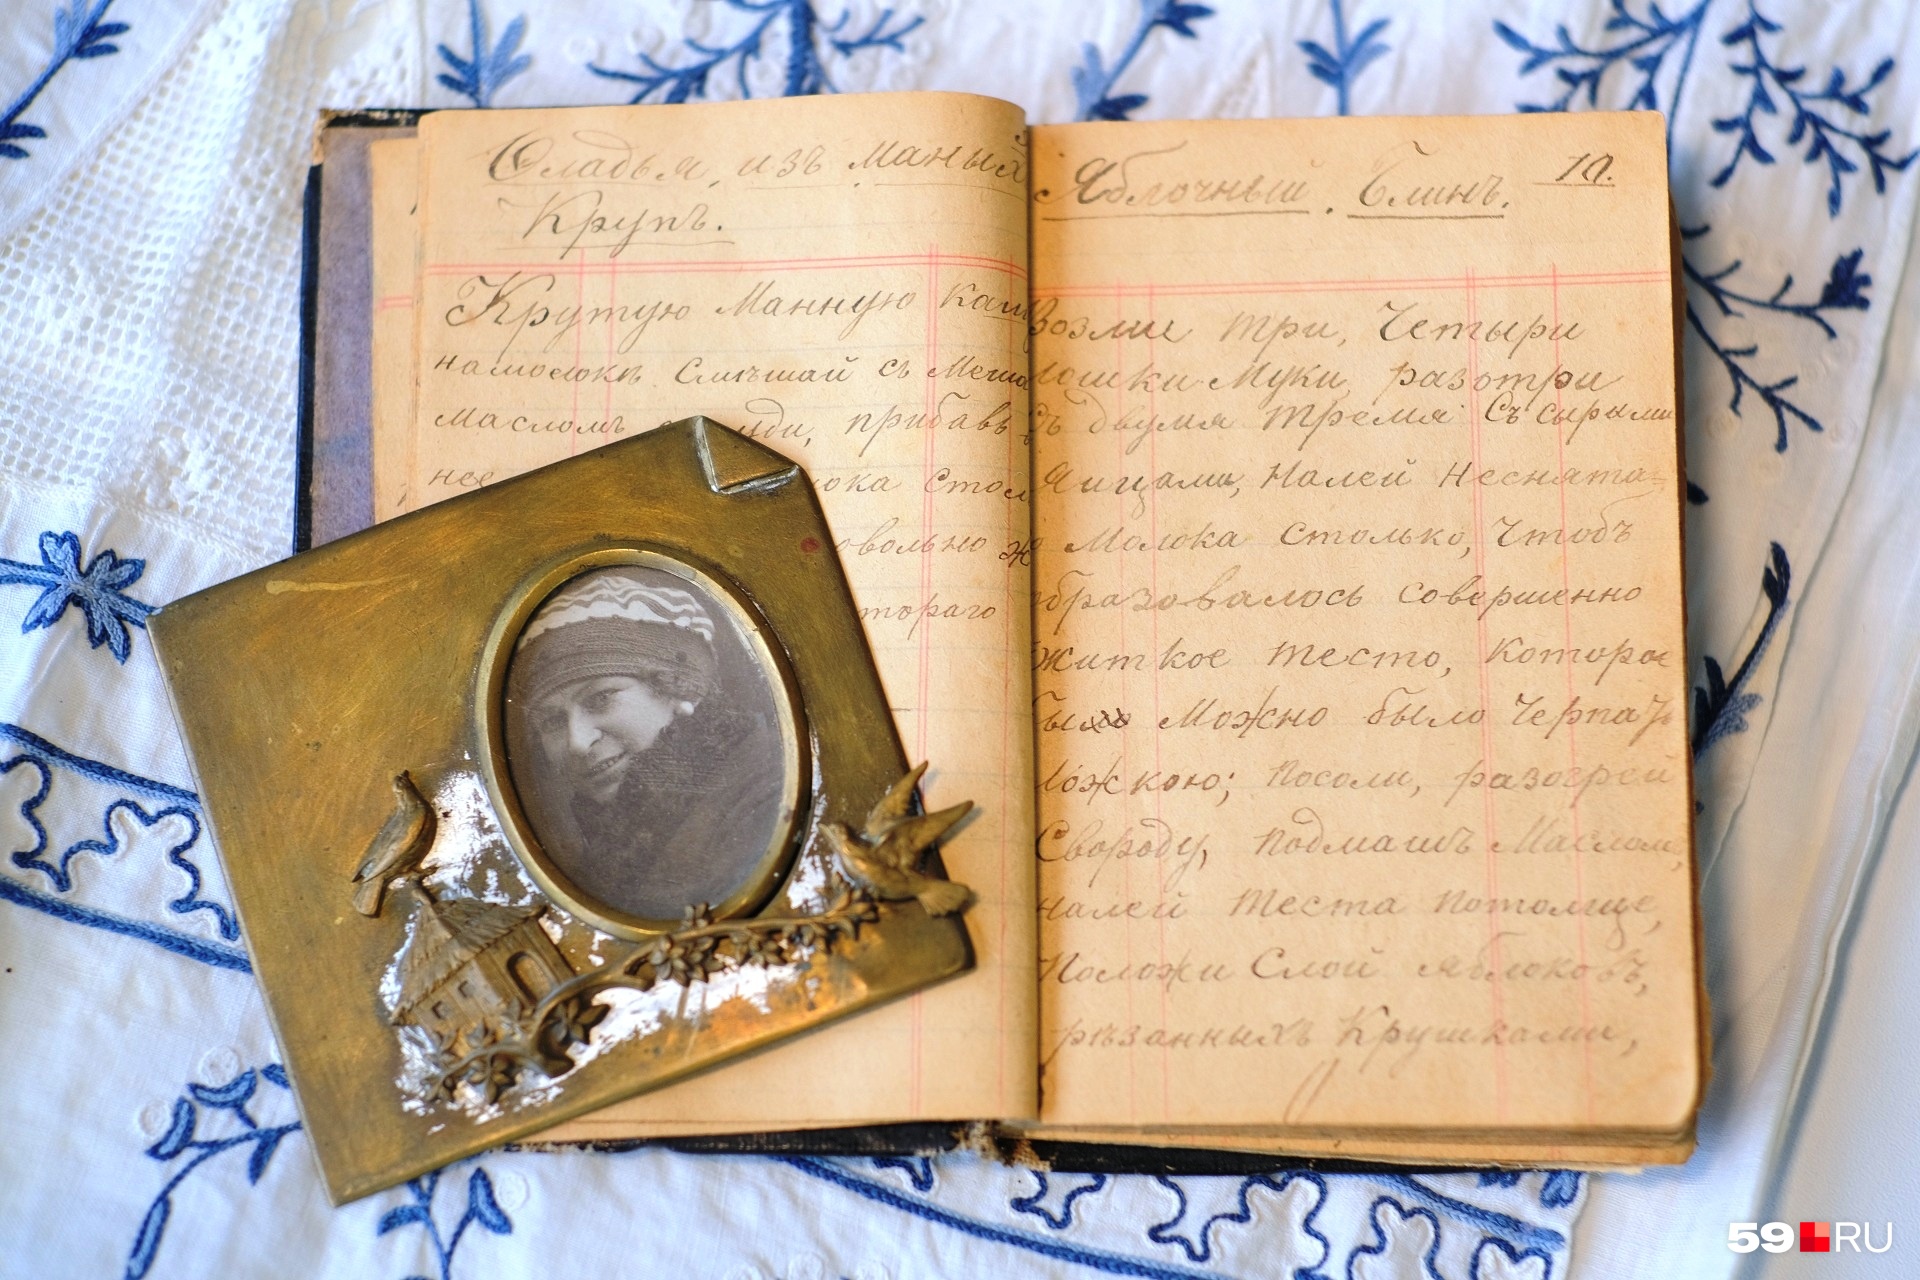 Оладьи, изъ маныхъ
Крупъ.
Крутую Манную каш
намолокѣ Смѣшай съ
масломъ прибавь
нее
ока стол
овольно ж
тораго
Яблочный. Блинъ.
Возми три, Четыри
лошки муки, разотри
съ двумя тремя съ сырыми
Яицами, налей неснята-
Молока столько, чтобъ
образовалось совершенно
житкое тесто, которое
бы можно было черпать
ложкою; посоли, разогрей
Свороду, подмашъ Маслом,
налей теста потолще,
Положи слой яблоковъ,
рѣзанныхъ Крушками,
59.RU